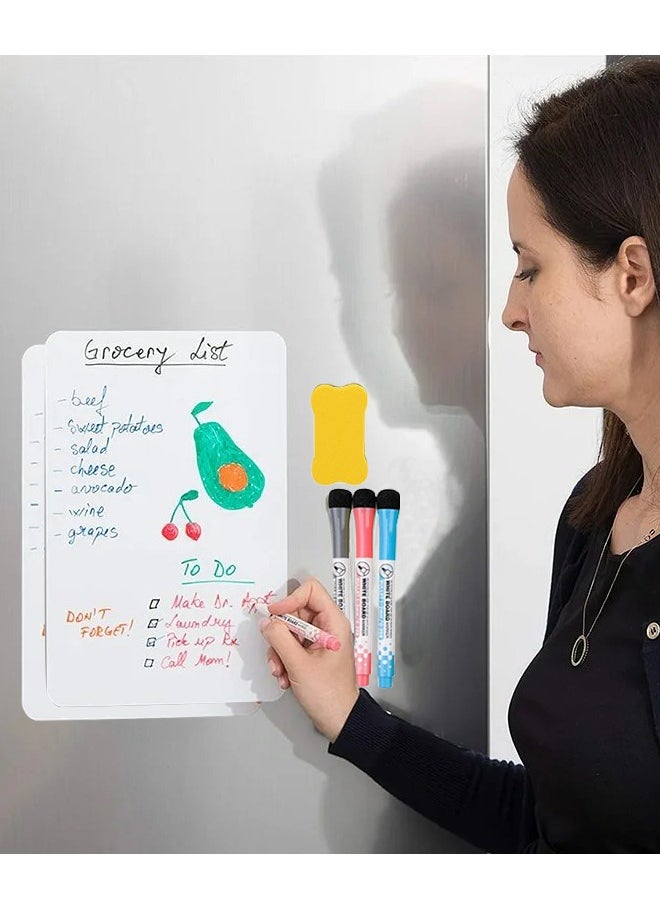 Grocery List
- beef
- sweet potatoes
- salad
- cheese
- avocado
- wine
- grapes
To Do
DON'T FORGET!
Make Dr. Apt
Laundry
Pick up Rx
Call Mom!
WHITE BOARD
WHITE BOARD
WHITE BOARD